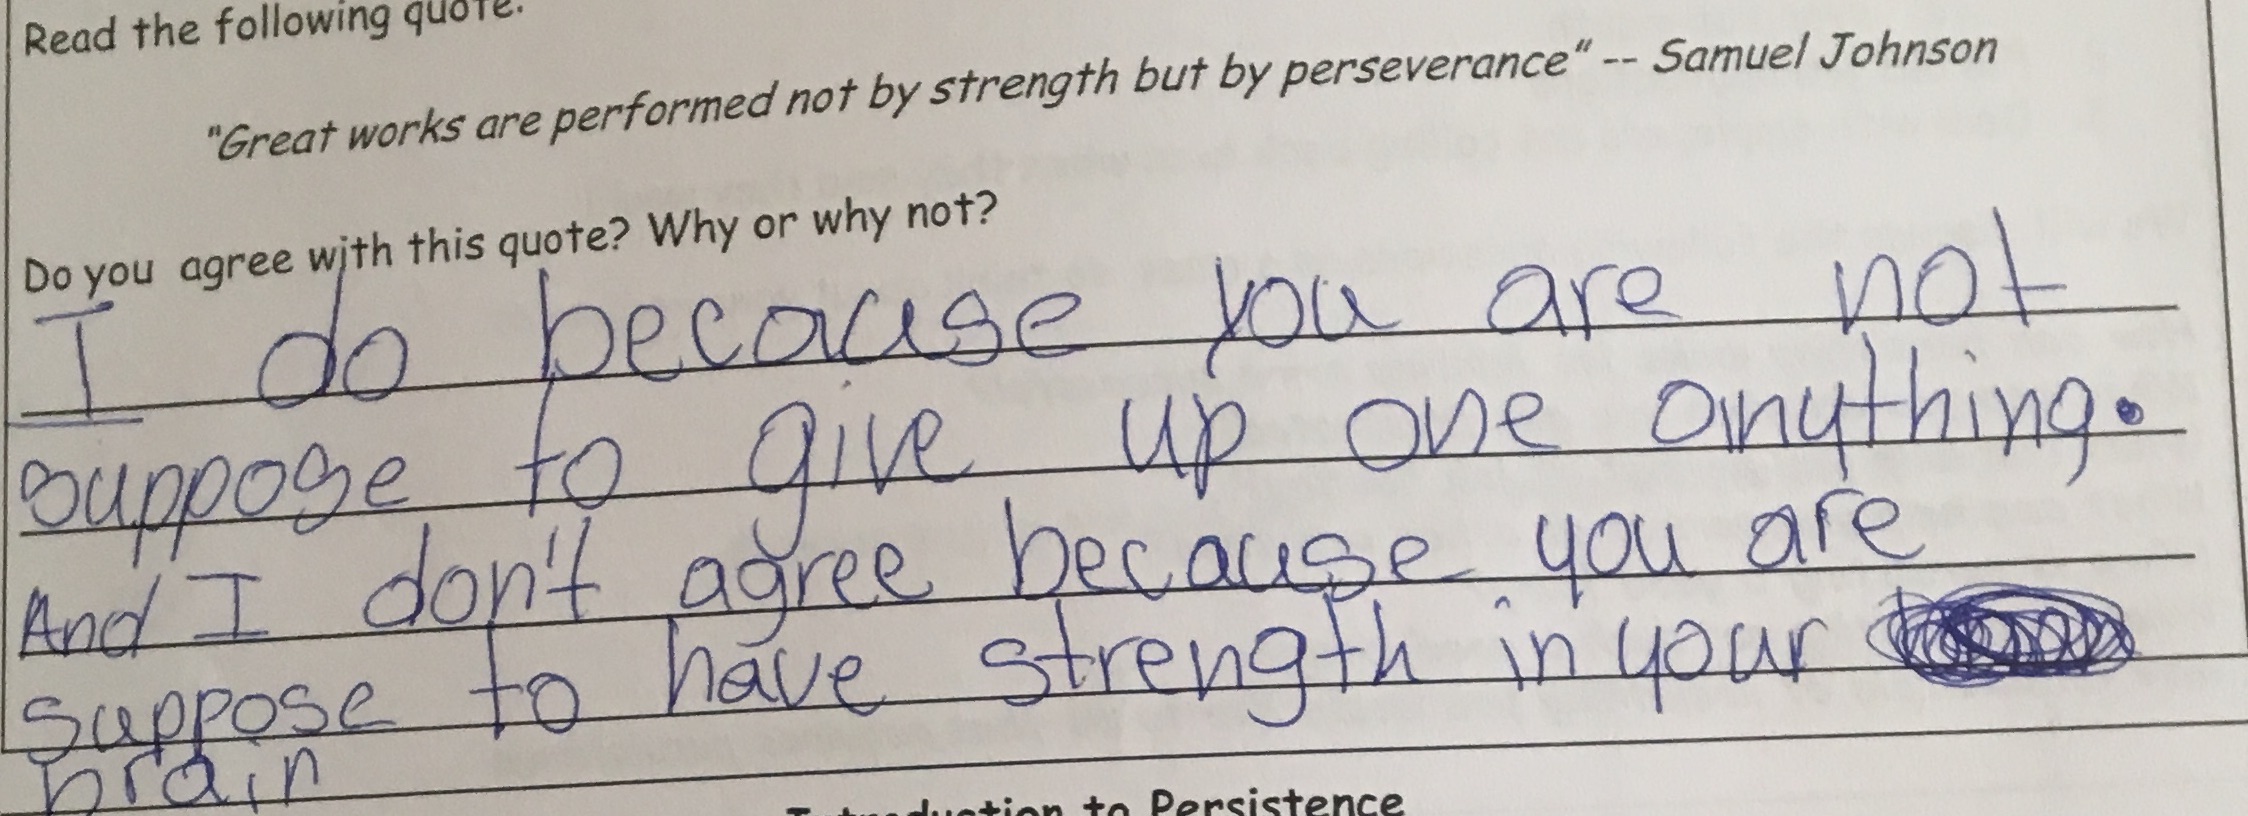 Read the following quote.
"Great works are performed not by strength but by perseverance" -- Samuel Johnson
Do you agree with this quote? Why or why not?
I do because you are not
suppose to give up one anything.
And I don't agree because you are
suppose to have strength in your
brain
Introduction to Persistence